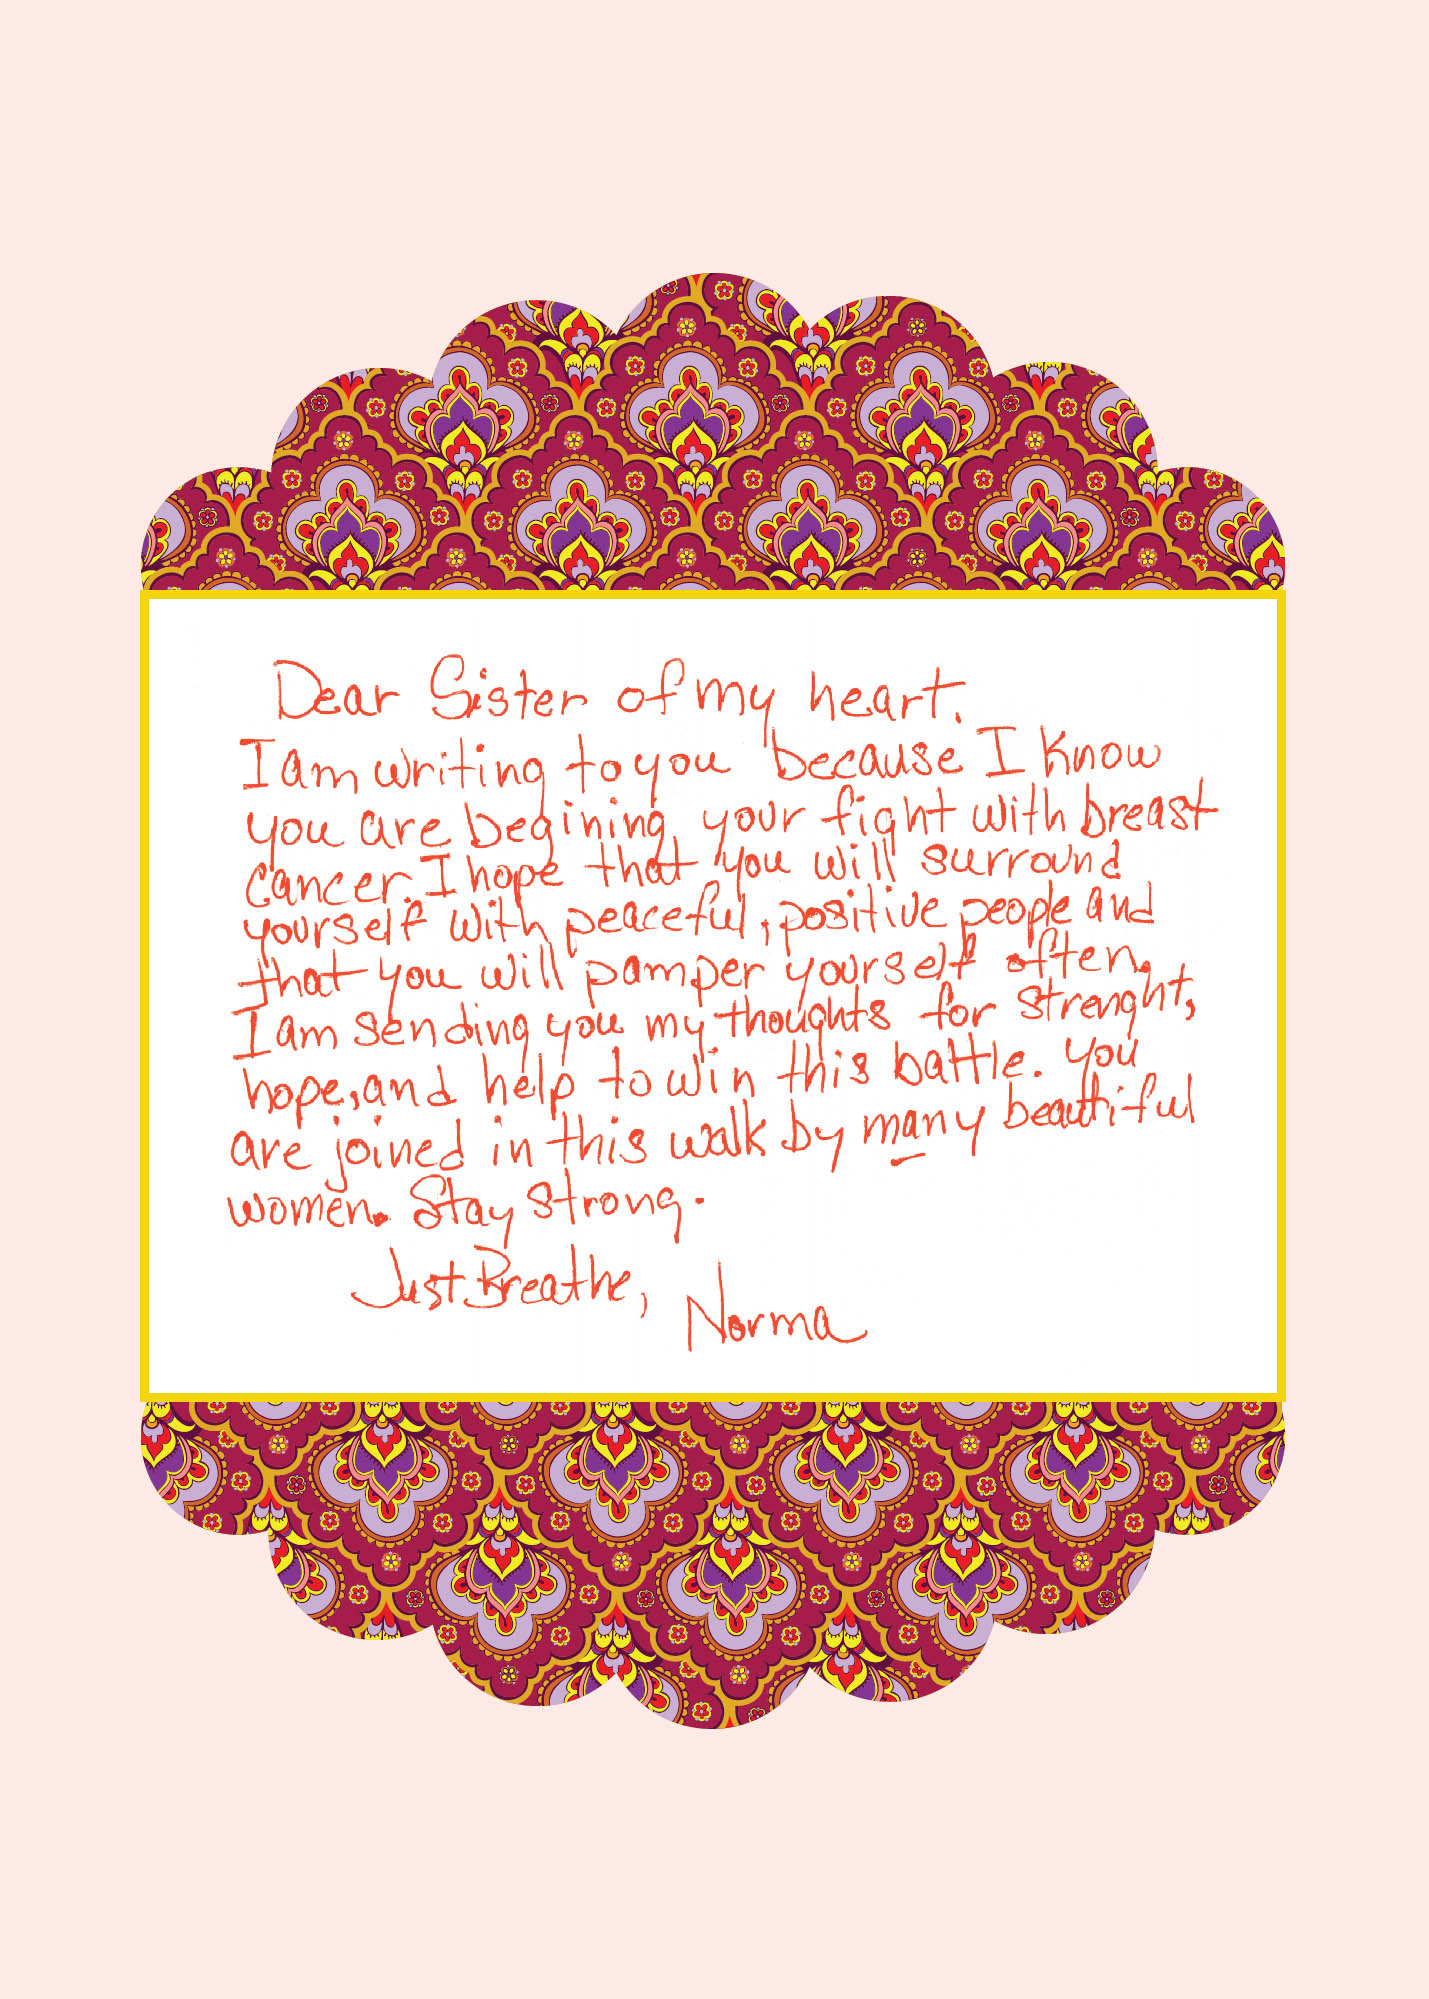 Dear Sister of my heart.
I am writing to you because I know
you are begining your fight with breast
cancer. I hope that you will surround
yourself with peaceful, positive people and
that you will pamper yourself often.
I am sending you my thoughts for strenght,
hope, and help to win this battle. You
are joined in this walk by many beautiful
women. Stay strong.
Just Breathe,
Norma